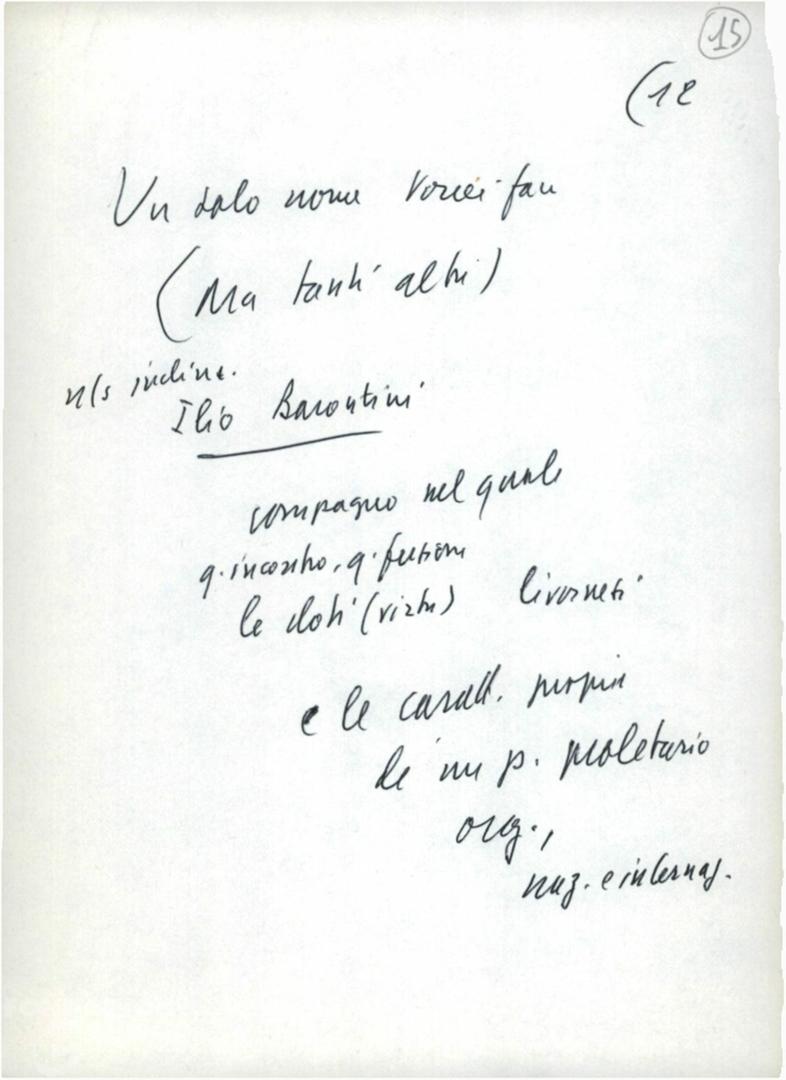 15
(12
Un solo nome vorrei fare
(Ma tanti altri)
n/s incline.
Ilio Barontini
compagno nel quale
q. incontro, q. fusione
le doti (virtù) livornesi
e le caratt. proprie
di un p. proletario
org.,
naz. e internaz.